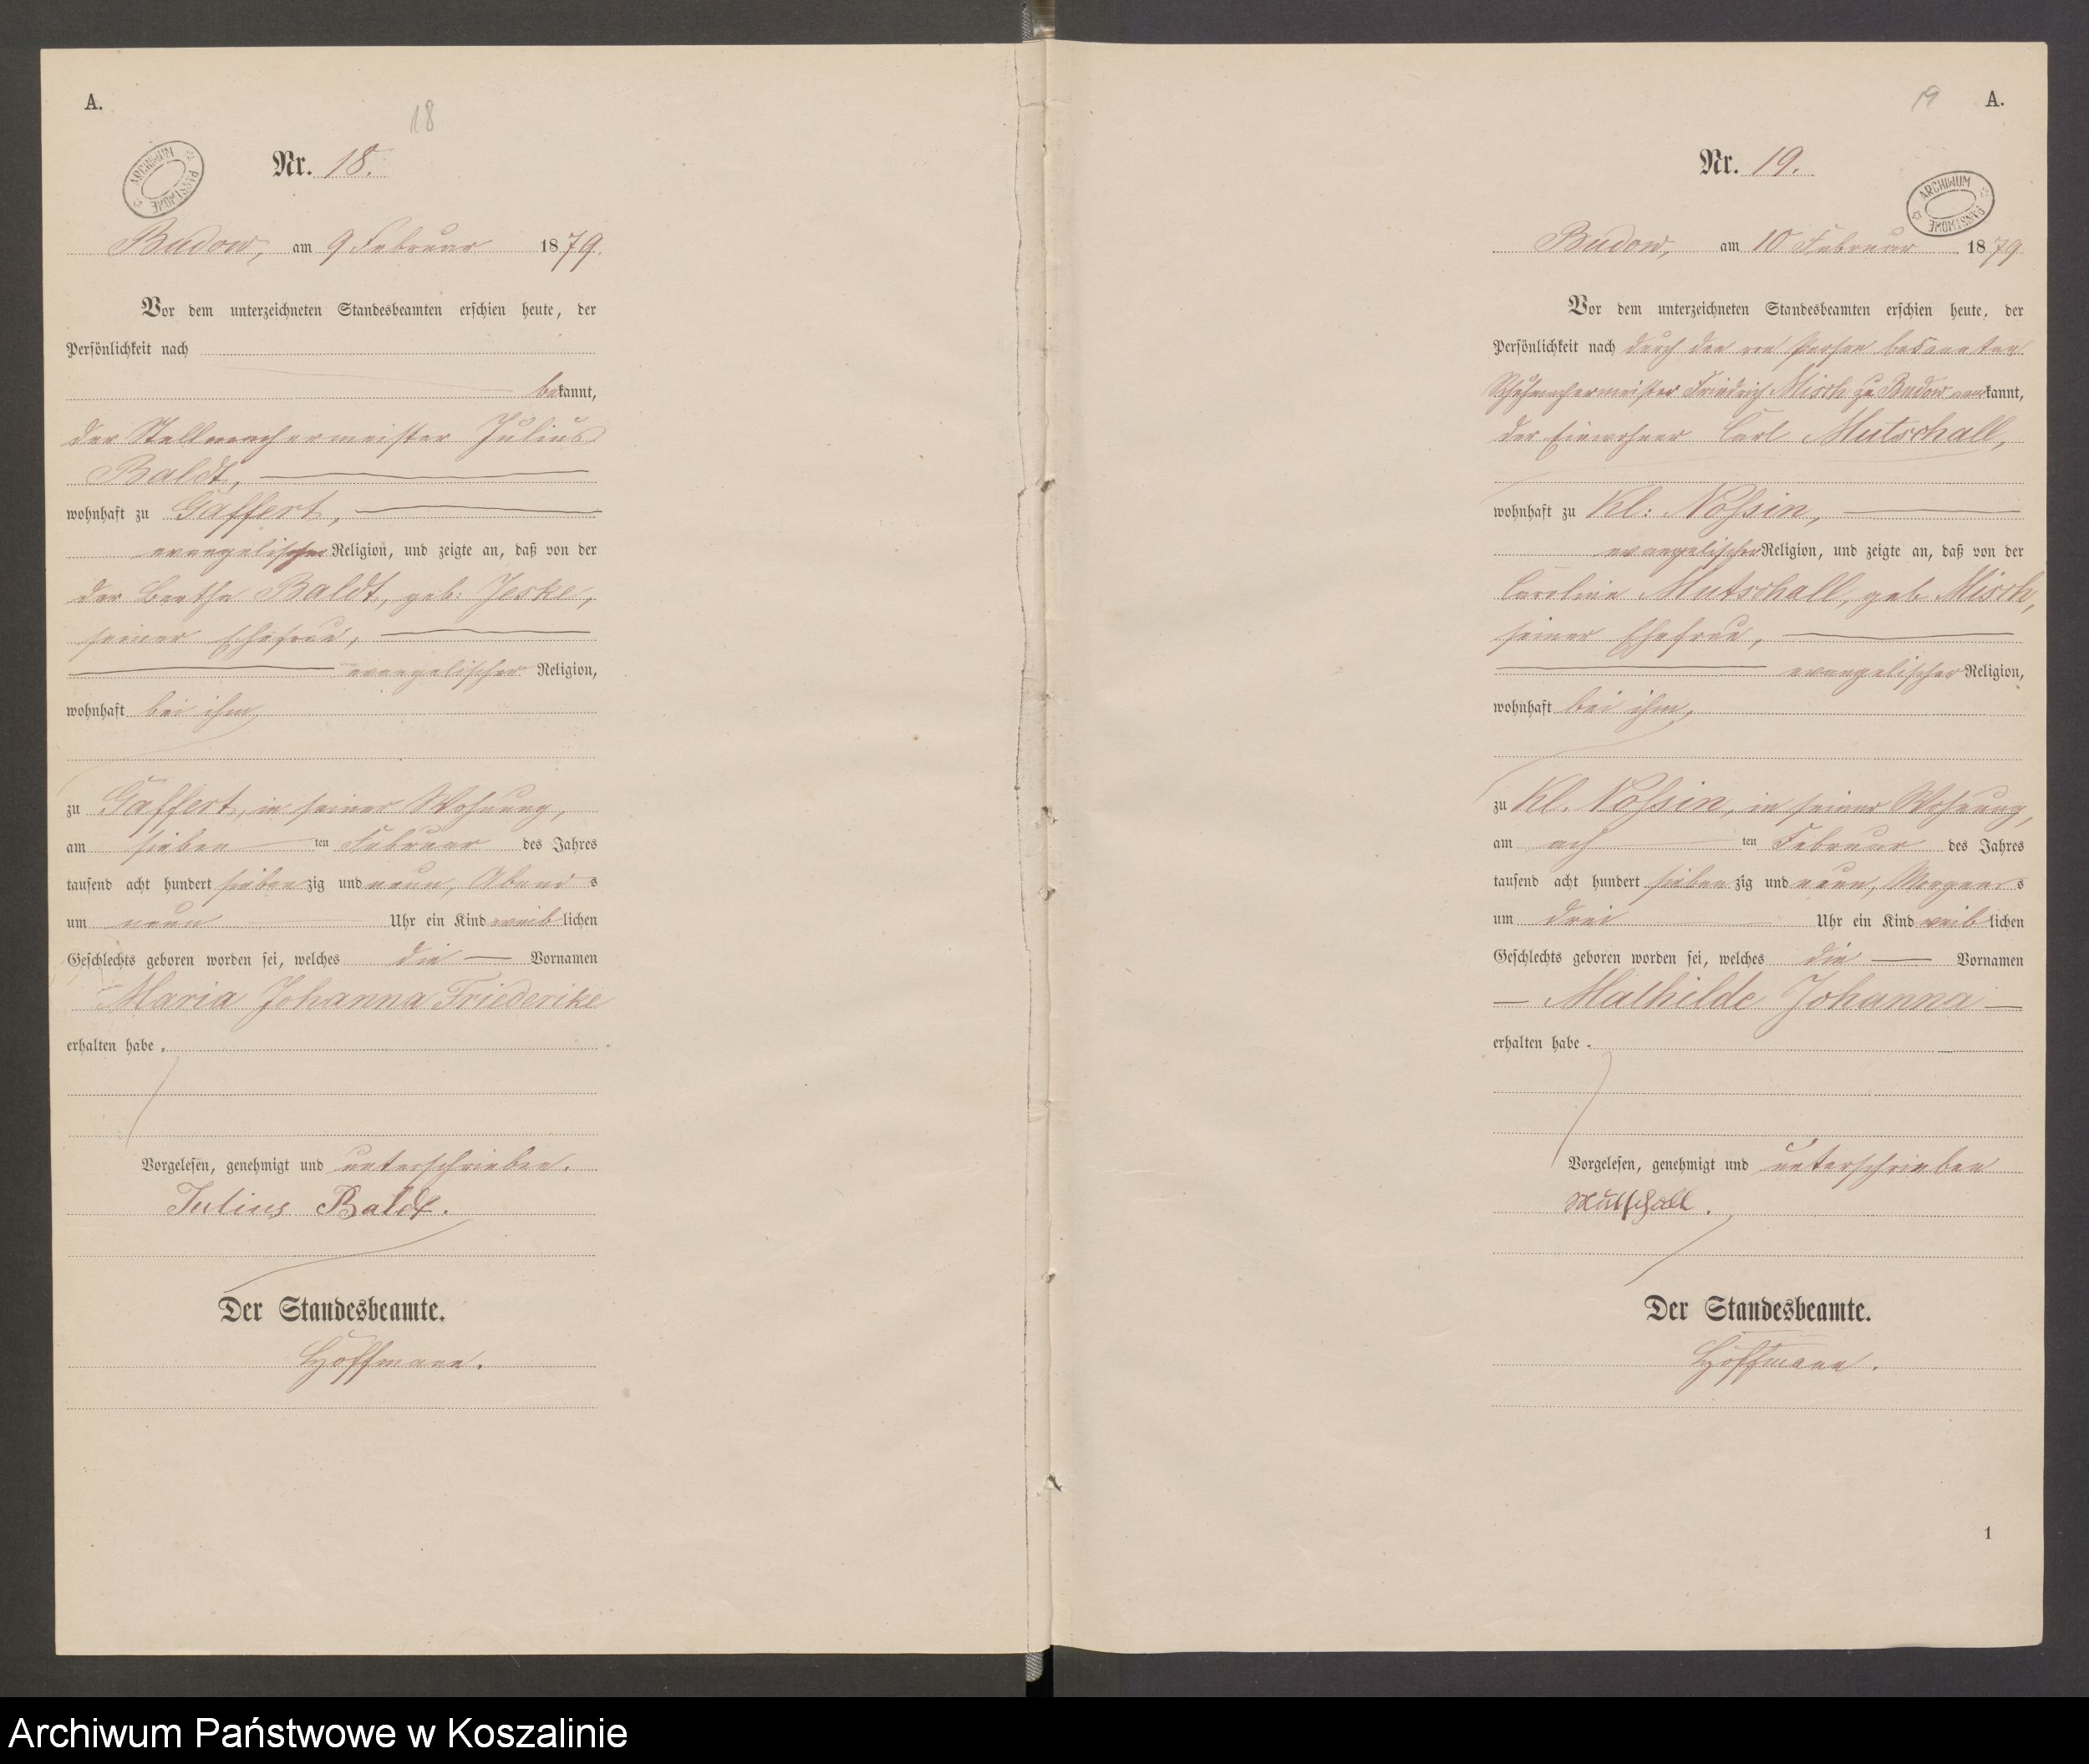 A.
18
Nr. 18.
ARCHIWUM PAŃSTWOWE
Budow, am 9 Februar 1879.
Vor dem unterzeichneten Standesbeamten erschien heute, der
Persönlichkeit nach
bekannt,
der Stellmachermeister Julius
Baldt,
wohnhaft zu Gaffert,
evangelischer Religion, und zeigte an, daß von der
der Bertha Baldt, geb. Jeske,
seiner Ehefrau,
evangelischer Religion,
wohnhaft bei ihm,
zu Gaffert, in seiner Wohnung,
am sieben ten Februar des Jahres
tausend acht hundert siebenzig und neun, Abends
um neun Uhr ein Kind weiblichen
Geschlechts geboren worden sei, welches die Vornamen
Maria Johanna Friederike
erhalten habe.
Vorgelesen, genehmigt und unterschrieben.
Julius Baldt.
Der Standesbeamte.
Hoffmann.
19 A.
Nr. 19.
ARCHIWUM PAŃSTWOWE
Budow, am 10 Februar 1879
Vor dem unterzeichneten Standesbeamten erschien heute, der
Persönlichkeit nach durch den von Person bekannten
Schuhmachermeister Friedrich Misch zu Budow anerkannt,
der Einwohner Carl Mutschall,
wohnhaft zu Kl: Nossin,
evangelischer Religion, und zeigte an, daß von der
Caroline Mutschall, geb. Misch,
seiner Ehefrau,
evangelischer Religion,
wohnhaft bei ihm,
zu Kl. Nossin, in seiner Wohnung,
am ach ten Februar des Jahres
tausend acht hundert siebenzig und neun, Morgens
um drei Uhr ein Kind weiblichen
Geschlechts geboren worden sei, welches die Vornamen
Mathilde Johanna
erhalten habe.
Vorgelesen, genehmigt und unterschrieben
Mutschall.
Der Standesbeamte.
Hoffmann.
1
Archiwum Państwowe w Koszalinie